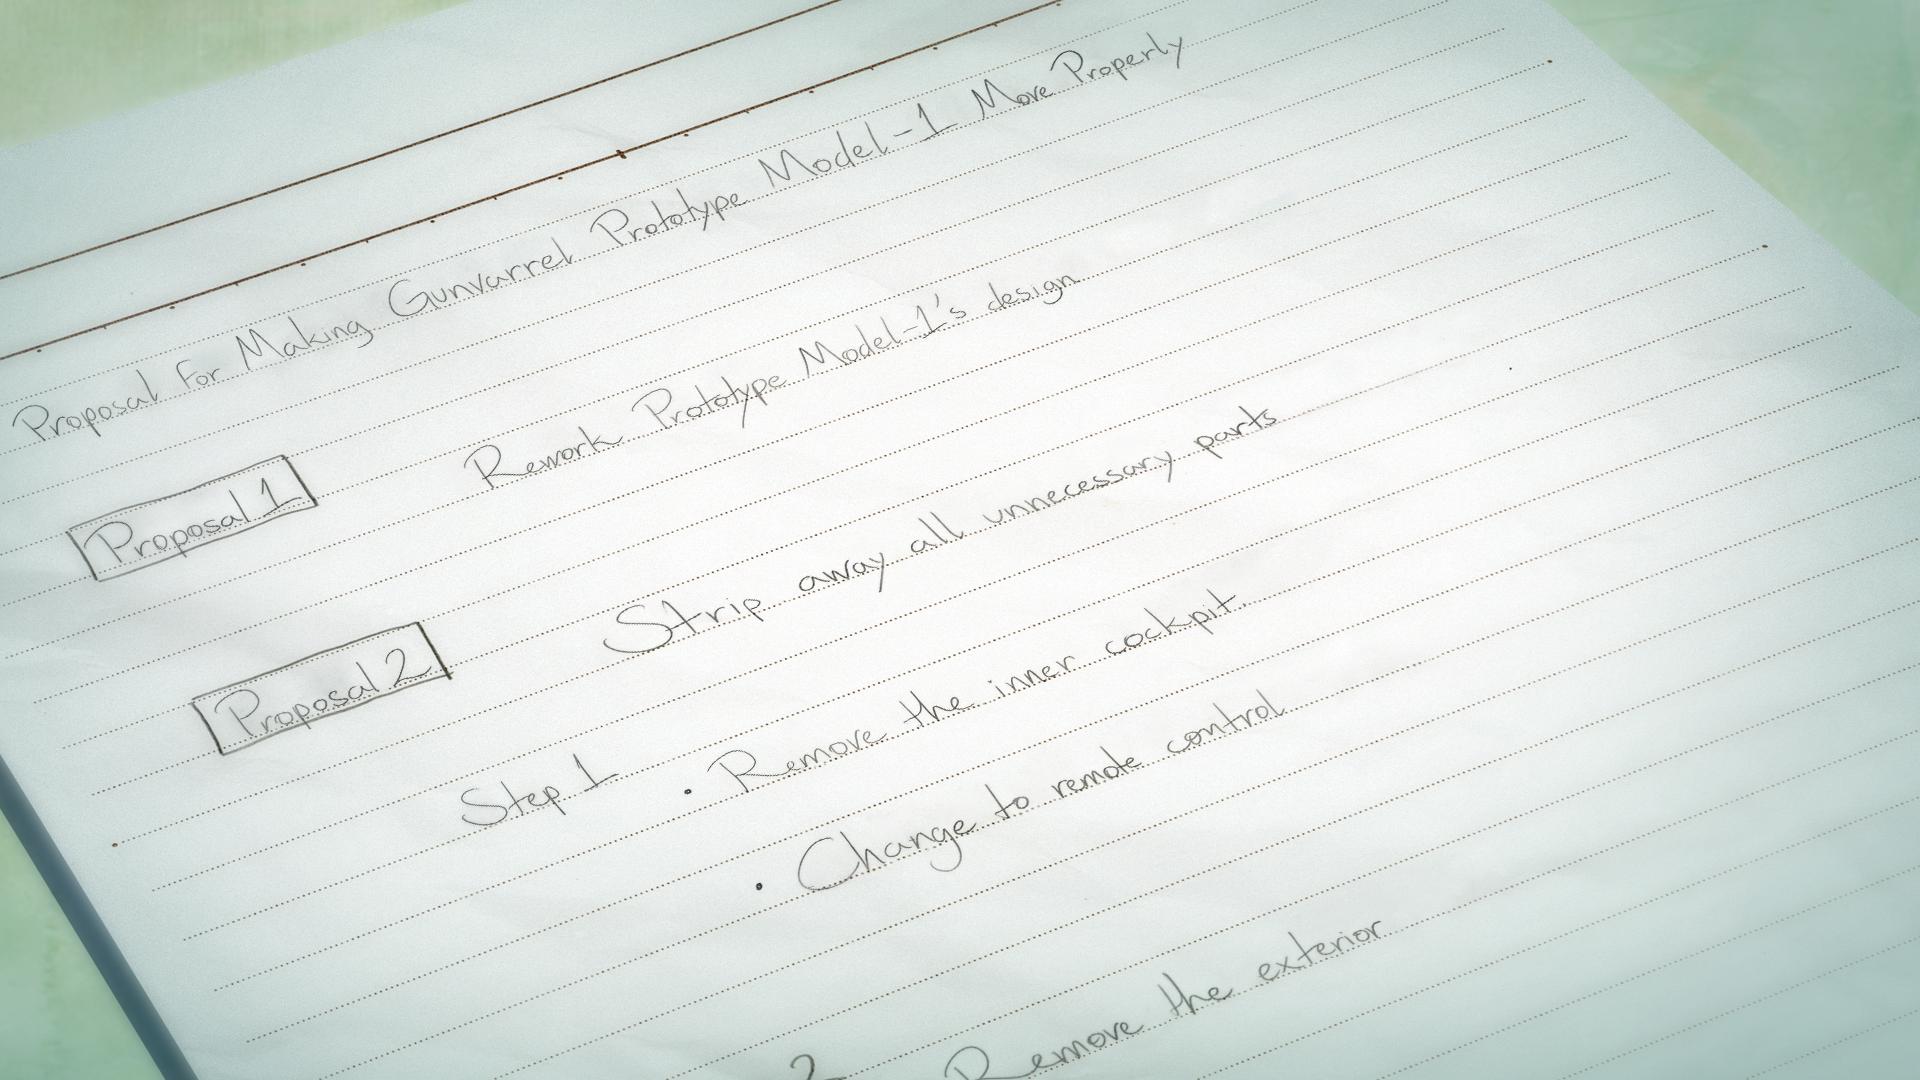 Proposal for Making Gunvarrel Prototype Model-1 Move Properly
Proposal 1 Rework Prototype Model-1's design
Proposal 2 Strip away all unnecessary parts
Step 1 • Remove the inner cockpit.
• Change to remote control
2 Remove the exterior